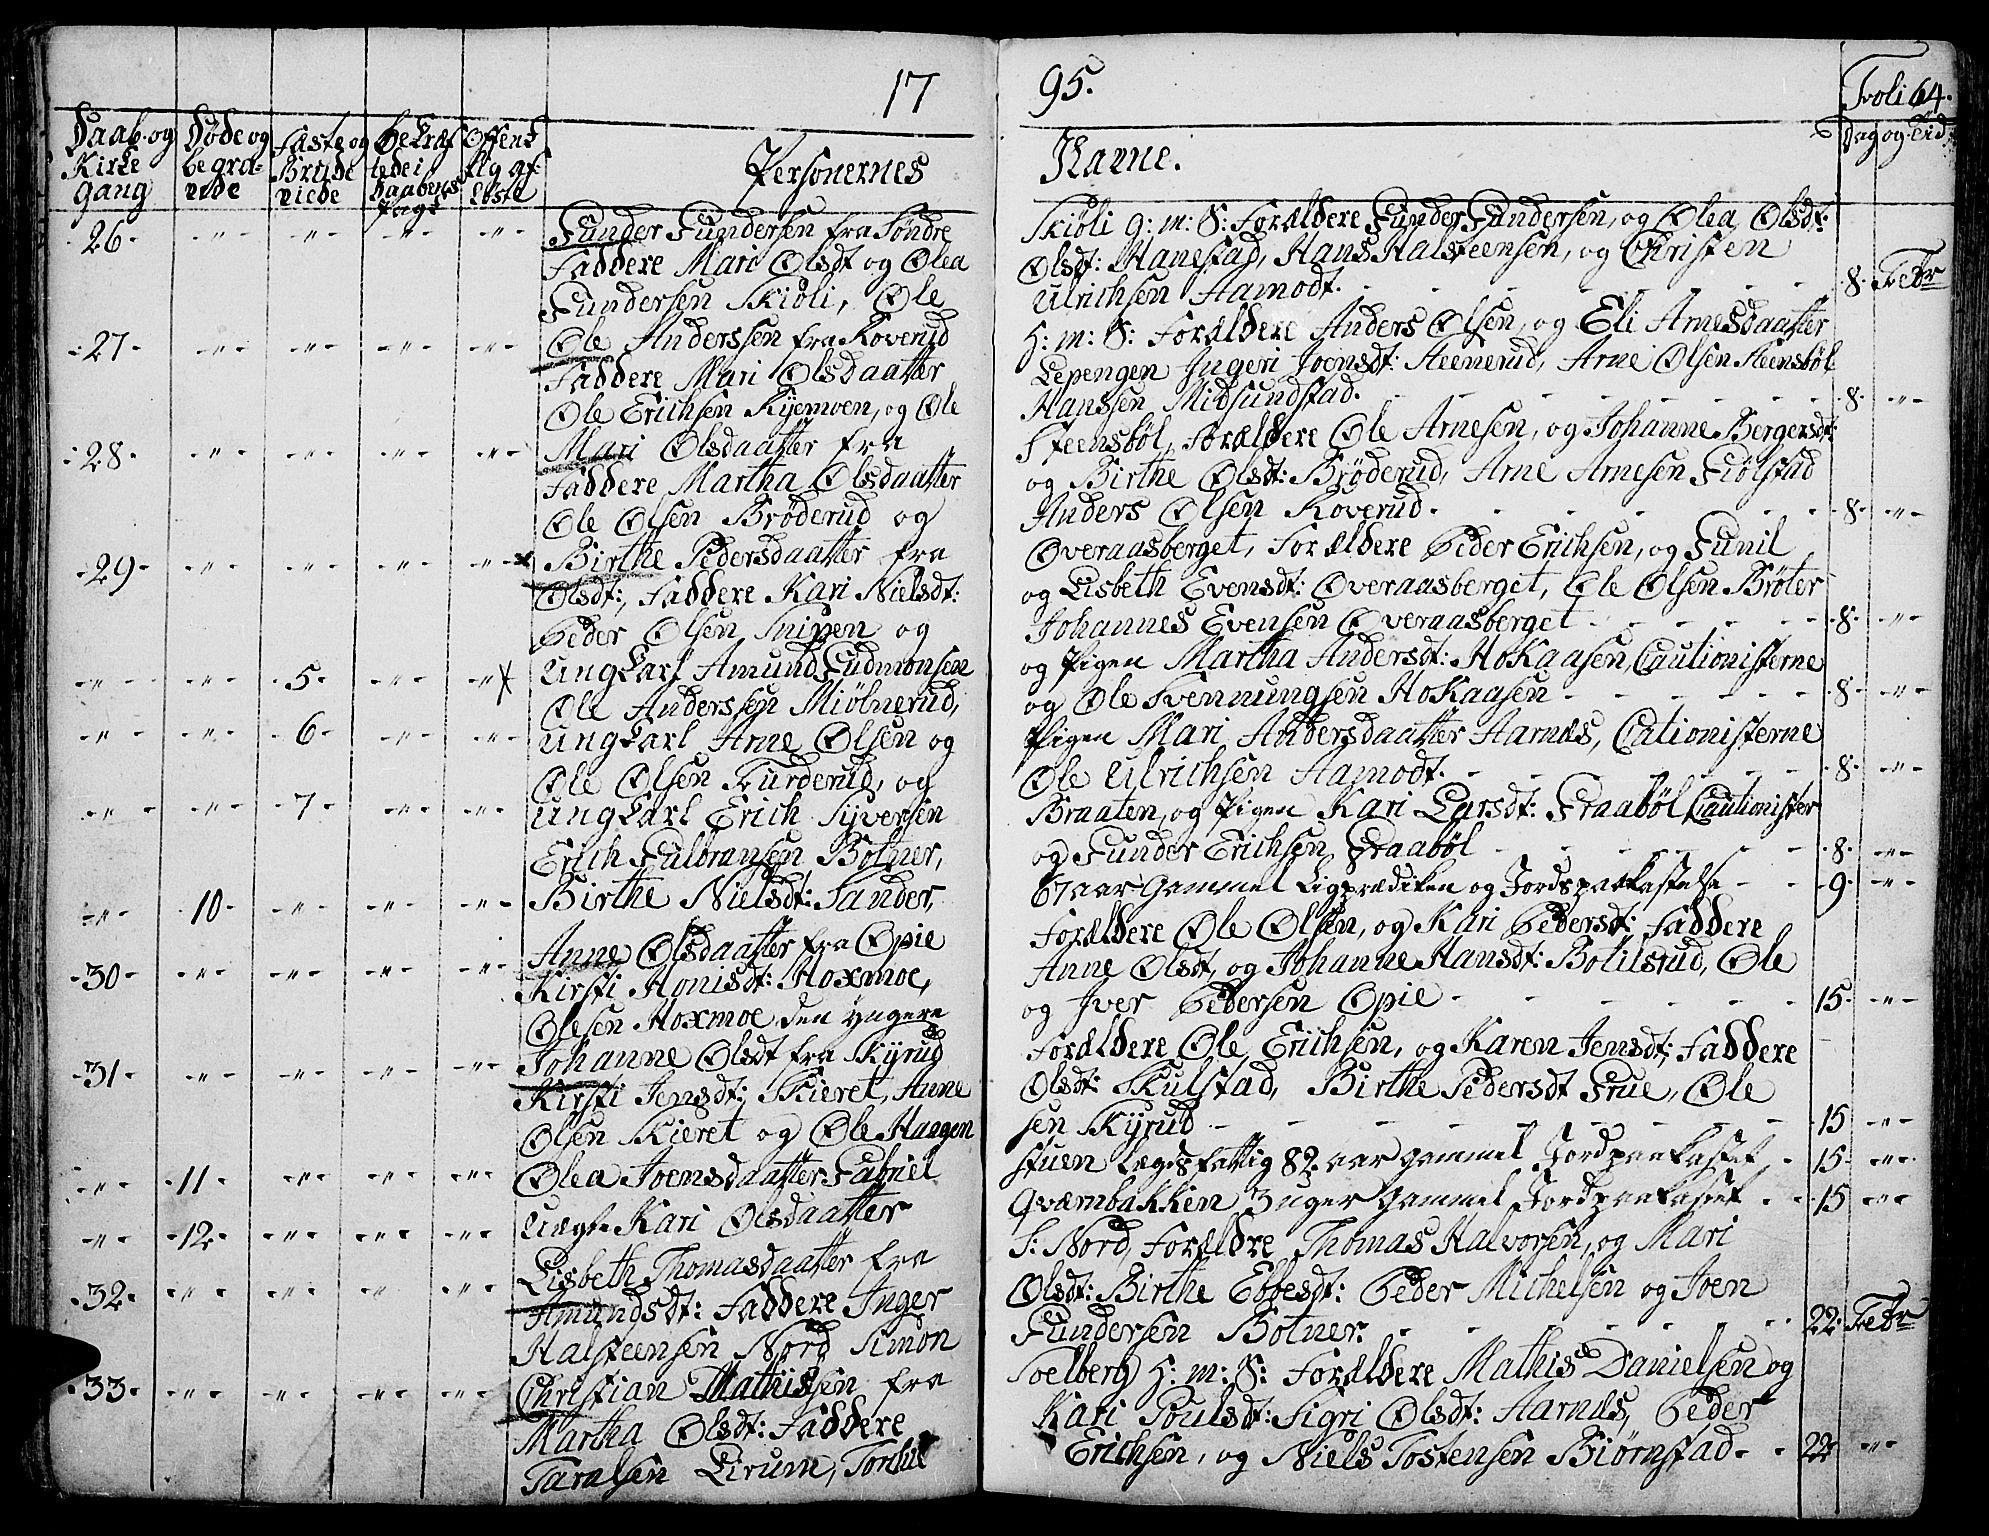 17
95.
Folio 64.
Daab og Kirke Gang
Døde og begravede
Fæste og Brude viede
Bekræftede i Daabens Pagt
Offentlig afløste
Personernes
Navne.
Dag og Tid
26 Gunder Gundersen fra Søndre
Skiöli H: m: S: Forældere Gunder Gundersen, og Ølea Ølsdt:
Faddere Mari Ølsdt og Ølea
Ølsdt: Hanestad, Hans Halsteensen, og Christen
Gundersen Skiöli, Øle
Ulrichsen Aamodt. 8. Febr
27 Øle Anderssen fra Roverud
H: m: S: Forældere Anders Ølsen, og Eli Arnesdaatter
Faddere Mari Ølsdaatter
Lepengen Ingeri Joensdt: Heenerud, Arne Ølsen Steensböl
Øle Erichsen Kyemoen, og Øle
Hanssen Midsundstad. 8.
28 Mari Ølsdaatter fra
Steensböl, Forældere Øle Arnesen, og Johanne Bergersdt:
Faddere Martha Ølsdaatter
og Birthe Ølsdt: Bröderud, Arne Arnesen Fiölstad
Øle Ølsen Bröderud og
Anders Ølsen Roverud. 8.
29 Birthe Pedersdaatter fra
Overaasberget, Forældere Peder Erichsen, og Gunil
Ølsdt:, Faddere Kari Nielsdt:
og Lisbeth Evensdt: Overaasberget, Øle Ølsen Bröter
Peder Ølsen Snipen og
Johannes Evensen Overaasberget 8.
5 Ungkarl Amund Gudmonsen
og Pigen Martha Andersdt: Hokaasen, Cautionisterne
Øle Anderssen Miölnerud,
og Øle Svennungsen Hokaasen 8.
6 Ungkarl Arne Ølsen og
Pigen Mari Andersdaatter Aarnæs, Cationisterne
Øle Ølsen Furderud, og
Øle Ulrichsen Aamodt. 8.
7 Ungkarl Erich Syversen
Braaten, og Pigen Kari Larsdt: Fraaböl, Cautionister
Erich Gulbransen Botner,
og Gunder Erichsen Fraaböl 8.
10 Birthe Nielsdt: Sander,
67 aar Gammel Ligprædiken og Jordspaakastelse 9.
30 Anne Ølsdaatter fra Opie
Forældere Øle Ølsen, og Kari Pedersdt: Faddere
Kirsti Monisdt: Hoxmoe,
Anne Ølsdt, og Johanne Hansdt: Botilsrud, Øle
Ølesen Hoxmoe den yngere
og Iver Pedersen Opie 15.
31 Johanne Ølsdt fra Skyrud
Forældere Øle Erichsen, og Karen Jensdt; Faddere
Kirsti Jensdt: Skieret, Anne
Ølsdt: Skulstad, Birthe Pedersdt Frue, Øle
Ølsen Skieret og Øle Haagen
sen Skyrud 15
11 Ølea Joensdaatter Gabriel
stuen Lægdsfattig 82 aar Gammel Jordpaakastet 15.
12 Uægte Kari Ølsdaatter
Qværnbakken 3 uger Gammel Jordpaakastet 15
32 Lisbeth Thomasdaatter fra
S: Nord, Forældre Thomas Halvorsen, og Mari
Amundsdt: Faddere Inger
Ølsdt: Birthe Ebbesdt: Peder Michelsen og Joen
Halsteensen Nord Simon
Gundersen Botner. 22. Febr
33 Christian Mathissen fra
Soelberg H: m: S: Forældere Mathis Danielsen og
Martha Ølsdt: Faddere
Kari Poulsdt: Sigri Ølsdt: Aarnæs, Peder
Taralsen Lirum, Torkil
Erichsen, og Niels Tostensen Biörnstad 22